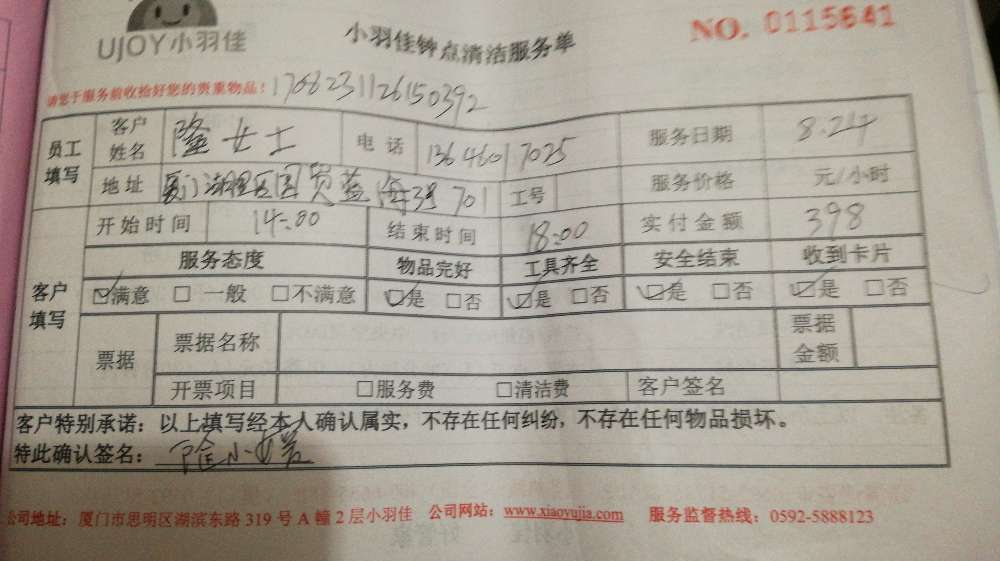 UJOY小羽佳
小羽佳钟点清洁服务单
NO. 0115641
请您于服务前收捡好您的贵重物品！
员工填写
客户姓名 女士 电话 服务日期 8.24
地址 701 工号 服务价格 元/小时
开始时间 14:00 结束时间 18:00 实付金额 398
客户填写
服务态度 物品完好 工具齐全 安全结束 收到卡片
☑满意 □一般 □不满意 ☑是 □否 ☑是 □否 ☑是 □否 ☑是 □否
票据 票据名称 票据金额
开票项目 □服务费 □清洁费 客户签名
客户特别承诺：以上填写经本人确认属实，不存在任何纠纷，不存在任何物品损坏。
特此确认签名：
公司地址：厦门市思明区湖滨东路 319 号 A 幢 2 层小羽佳 公司网站：www.xiaoyujia.com 服务监督热线：0592-5888123